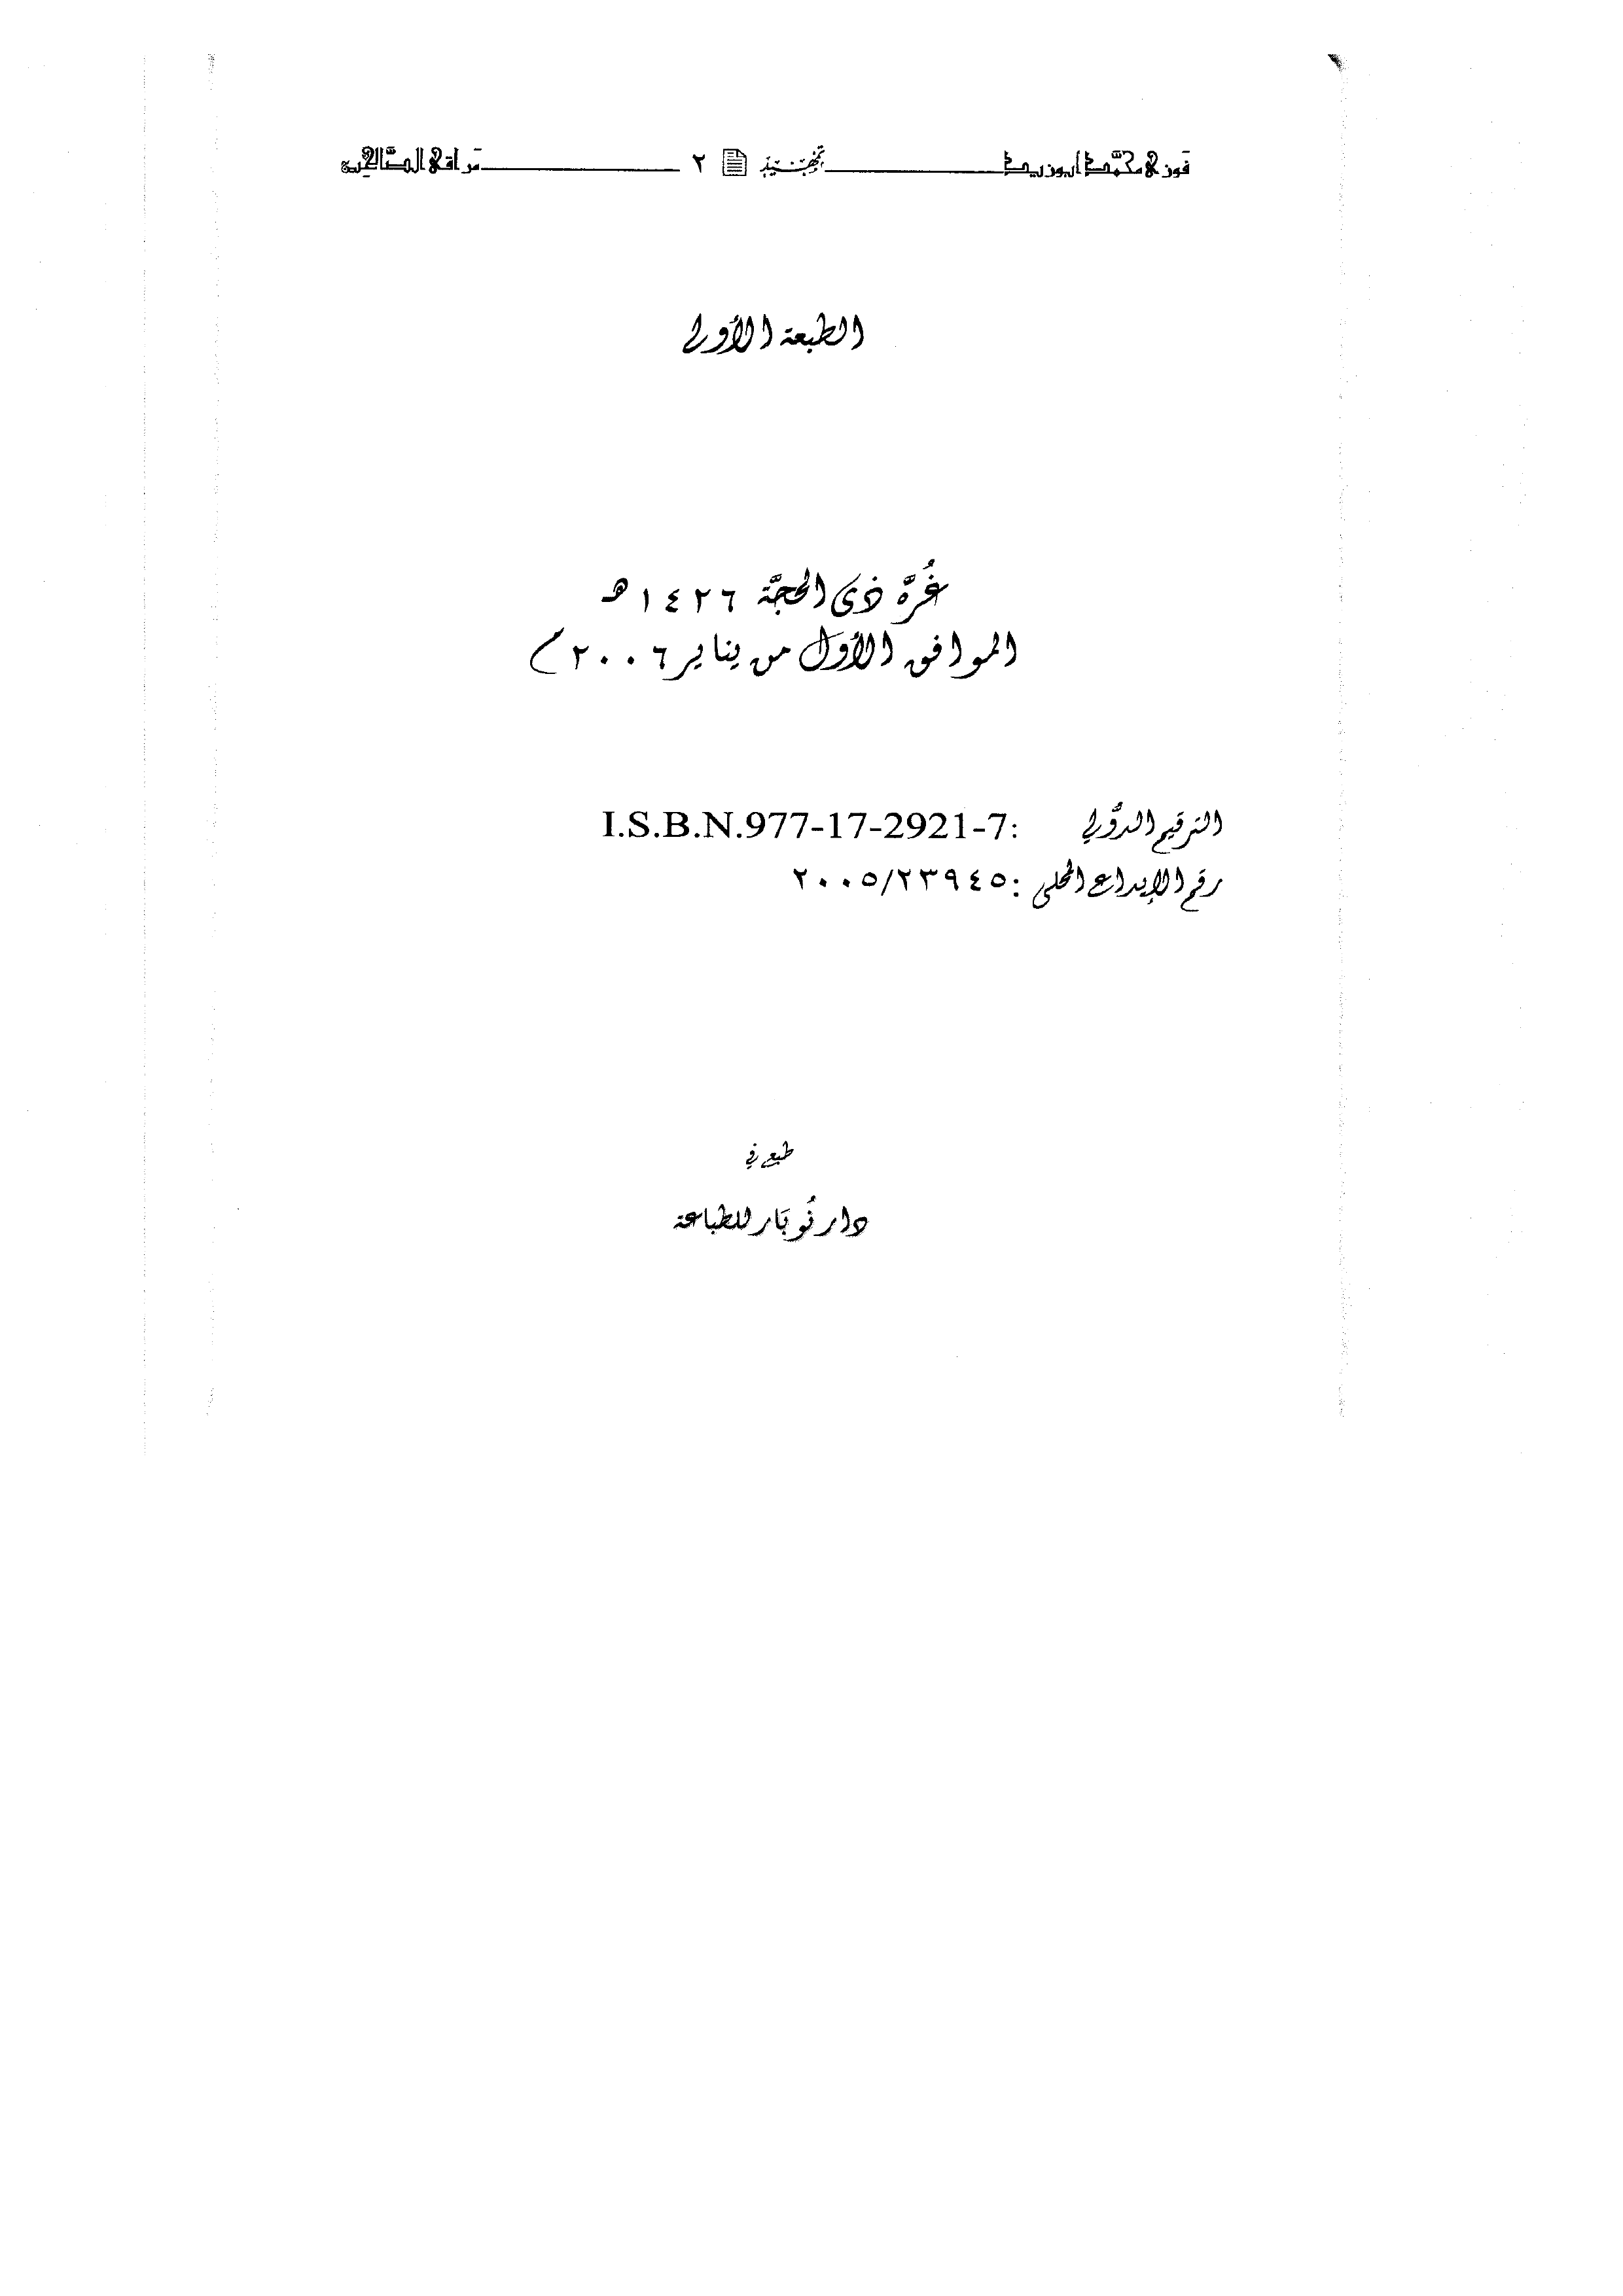 فوزى محمَّد أبوزيد تمهيد ٢ مراقى الصَّالحين
الطبعة الأولى
غُرَّة ذى الحجَّة ١٤٢٦هـ
الموافق الأول من يناير ٢٠٠٦م
الترقيم الدُّولى :I.S.B.N.977-17-2921-7
رقم الإيداع المحلى :٢٠٠٥/٢٣٩٤٥
طبع فى
دار نُوبَار للطباعة